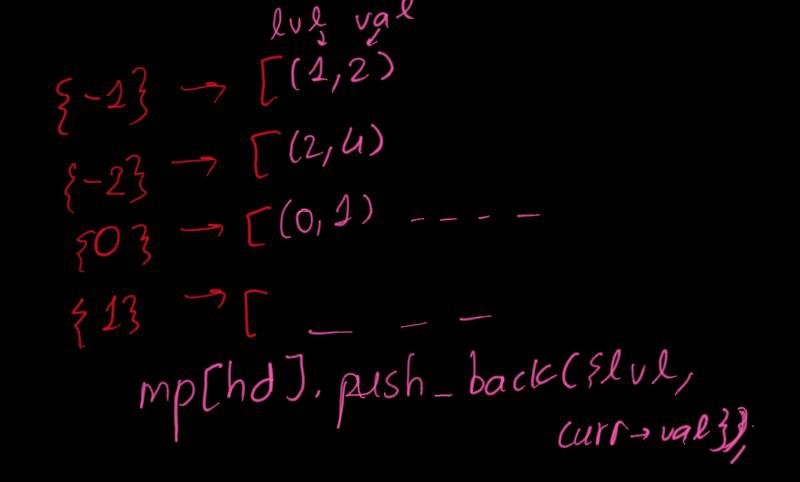 lvl val
{-1} → [(1,2)
{-2} → [(2,4)
{0} → [(0,1) ----
{1} → [ ---
mp[hd].push_back({lvl,
curr→val});